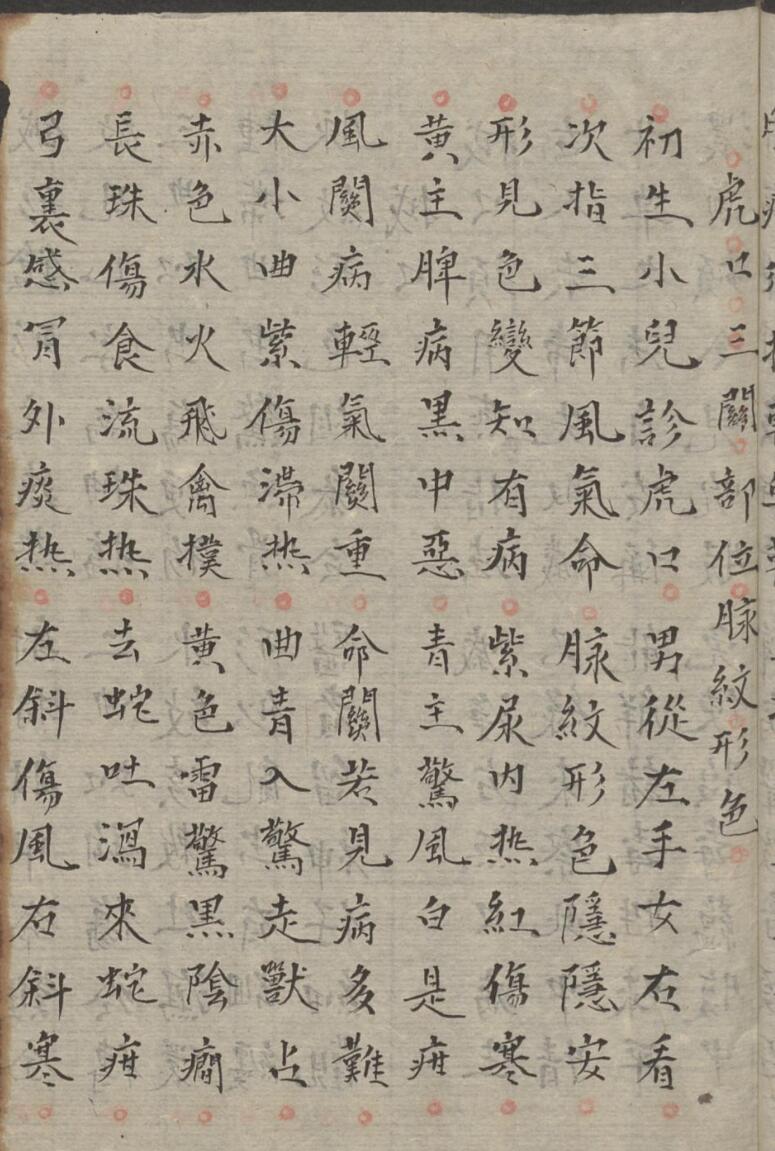 虎口三關部位脉紋形色
初生小兒診虎口男從左手女右看
次指三節風氣命脉紋形色隱隱安
形見色變知有病紫尿内热紅傷寒
黄主脾病黑中惡青主驚風白是疳
風関病輕氣関重命關若見病多難
大小曲紫傷滯热曲青入驚走獸占
赤色水火飛禽撲黄色雷驚黑陰癎
長珠傷食流珠热去蛇吐瀉來蛇疳
弓裏感冐外痰热左斜傷風右斜寒